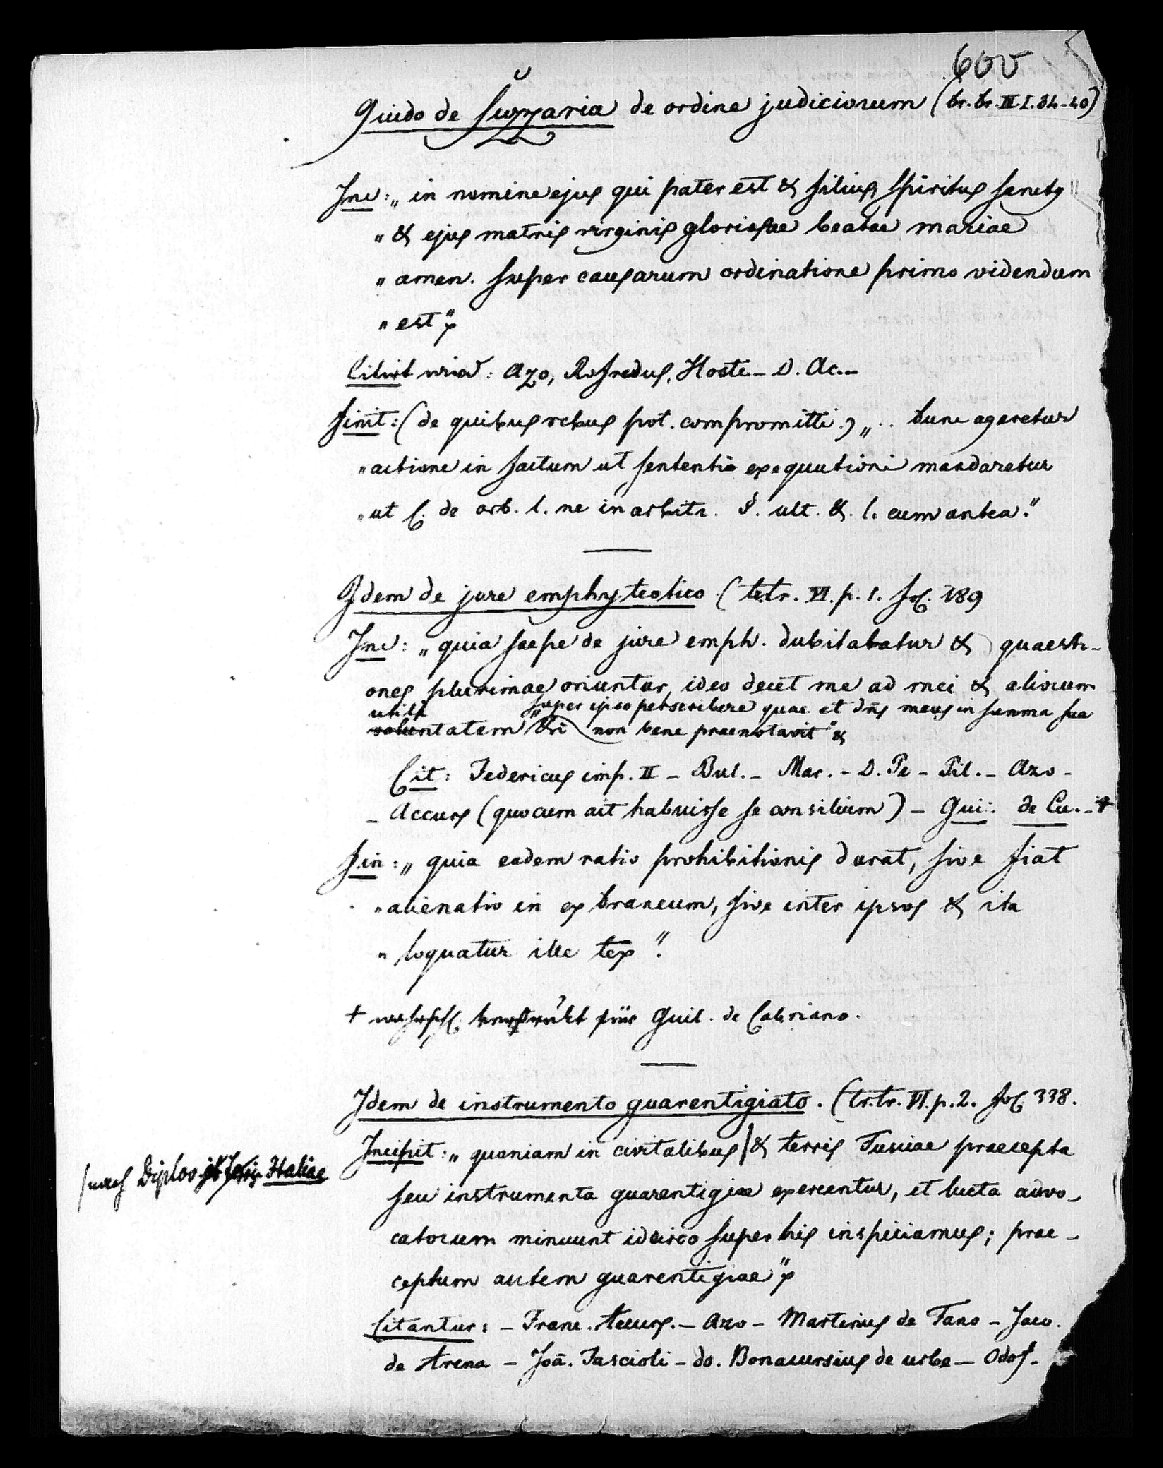 60v
Guido de Suzzaria de ordine judiciorum (tr. tr. III. I. 34-40)
Inc: „in nomine ejus qui pater est & filius, spiritus sancty
„& ejus matris virginis gloriosae beatae mariae
„amen. super causarum ordinatione primo videndum
„est"
Citirt wird: Azo, Rofredus, Hosti_ D. Ac._
finit: (de quibus rebus pot. compromitti.) „.. tunc ageretur
„actione in factum ut sententia exequutioni mandaretur
„ut C. de arb. l. ne in arbitr. §. ult. & l. cum antea."
Idem de jure emphyteotico (tr.tr. VI. p. 1. fol. 189
Inc: „quia saepe de jure emph. dubitabatur & quaesti-
ones plurimae oriuntur, ideo decet me ad mei & aliorum
utilit super ipso perscribere quae et dñs meus in summa sua
voluntatem non bene praenotavit" &
Cit: Federicus imp. II _ Bul. _ Mar. _ D. Pe _ Pil. _ Azo _
_ Accurs (quocum ait habuisse se consilium) _ Gui: de Cu. _ +
fin: „quia eadem ratio prohibitionis durat, sive fiat
„alienatio in extraneum, sive inter ipsos & ita
„loquatur ille tex".
+ für Guil. de Cabriano.
Idem de instrumento guarentigiato. (tr.tr. VI. p. 2. fol 338.
Incipit: „quoniam in civitatibus & terris Tusciae praecepta
Diplov Italiae
seu instrumenta guarentigiae exercentur, et lucta advo_
catorum minuunt idcirco super his inspiciamus; prae_
ceptum autem guarentigiae"
Citantur: _ Franc. Accurs. _ Azo _ Martinus de Fano _ Jaco.
de Arena _ Joã. Fascioli _ do. Bonacursius de urbe _ Odof_